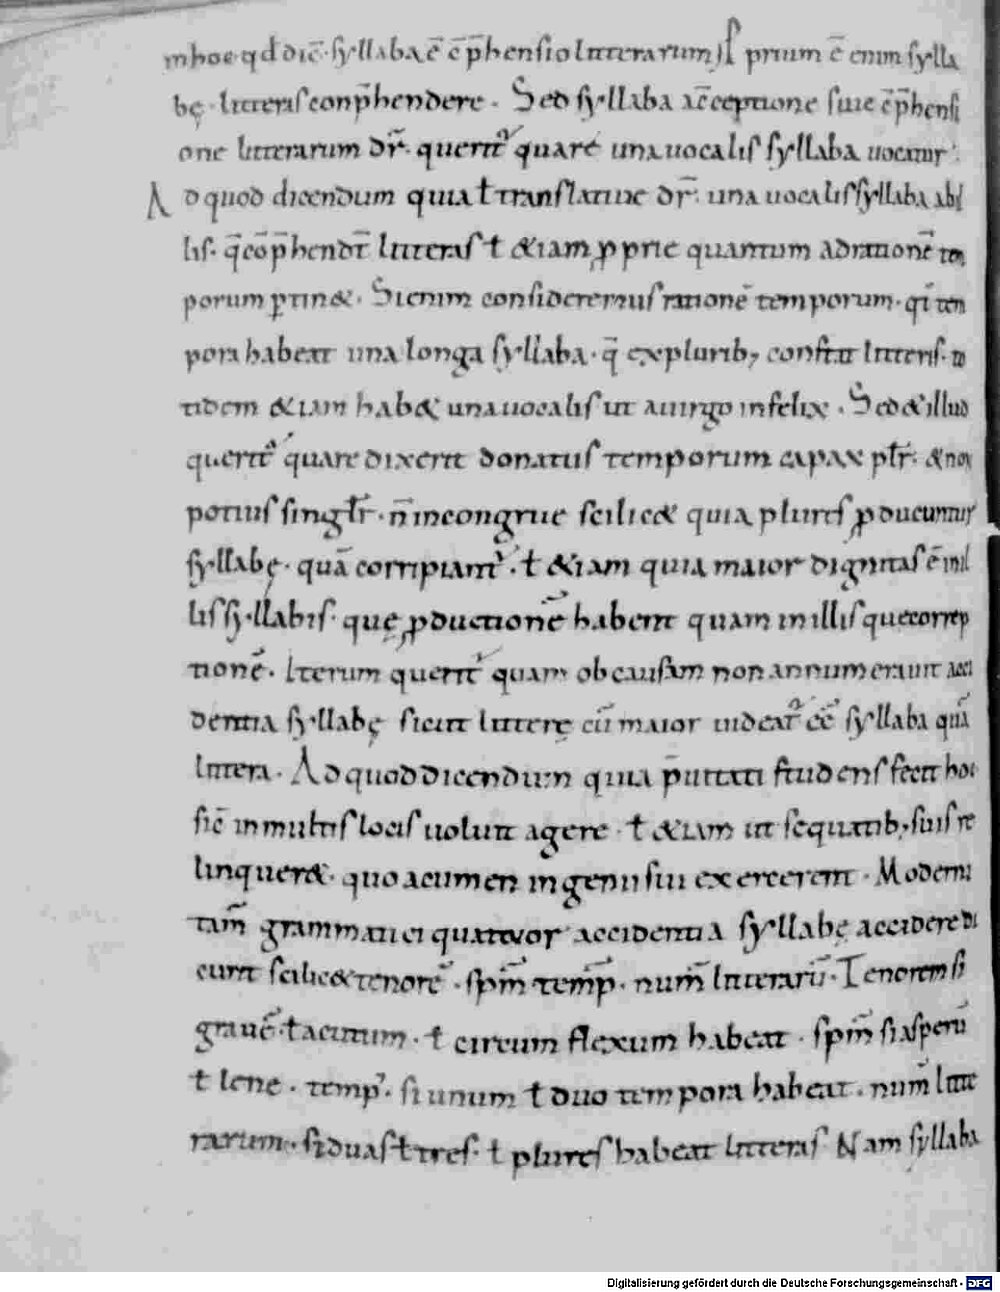 in hoc qd dic̄ · syllaba ē c̄p̄hensio litterarum ꝓprium ē enim sylla
bę · litteras conp̄hendere · Sed syllaba acceptione siue c̄p̄hensi
one litterarum dr̄ · querit᷑ quare una uocalis syllaba uocatur ·
Ad quod dicendum quia ł translatiue dr̄ · una uocalis syllaba ab il
lis · q̄ cōp̄hendt̄ litteras ł &iam ꝓprie quantum ad rationē tem
porum ꝑtin& · Si enim consideremus rationē temporum · qd̄ tem
pora habeat una longa syllaba · q̄ ex plurib; constat litteris · to
tidem &iam hab& una uocalis ut a uirgo infelix · Sed & illud
querit᷑ quare dixerit donatus temporum capax płr̄ · & non
potius singłr̄ · n̄ incongrue scilic& quia plures ꝓducuntur
syllabę · quā corripiant᷑ · ł &iam quia maior dignitas ē in il
lis syllabis · quę ꝓductionē habent quam in illis que correp
tionē · Iterum querit᷑ quam ob causam non annumerauit acci
dentia syllabę sicut litterę cū maior uideat᷑ eē syllaba quā
littera · Ad quod dicendum quia p̄uitati studens fecit hoc
sic̄ in multis locis uoluit agere · ł &iam ut sequatib; suis re
linquer& · quo acumen ingenii sui exercerent · Moderni
tam̄ grammatici quattuor accidentia syllabę accidere di
cunt scilic& tenorē · spm̄ temp̄ · num̄ litterarū · Tenorem si
grauē · ł acutum · ł circumflexum habeat · spm̄ si asperū
ł lene · temp᷒ · si unum ł duo tempora habeat · num̄ litte
rarum · si duas ł tres · ł plures habeat litteras Nam syllaba
Digitalisierung gefördert durch die Deutsche Forschungsgemeinschaft - DFG